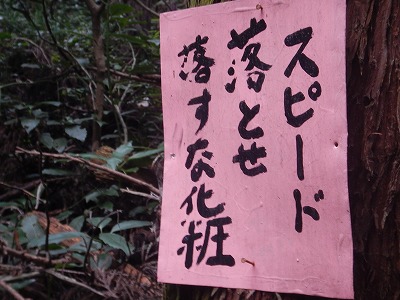 スピード
落とせ
落すな化粧